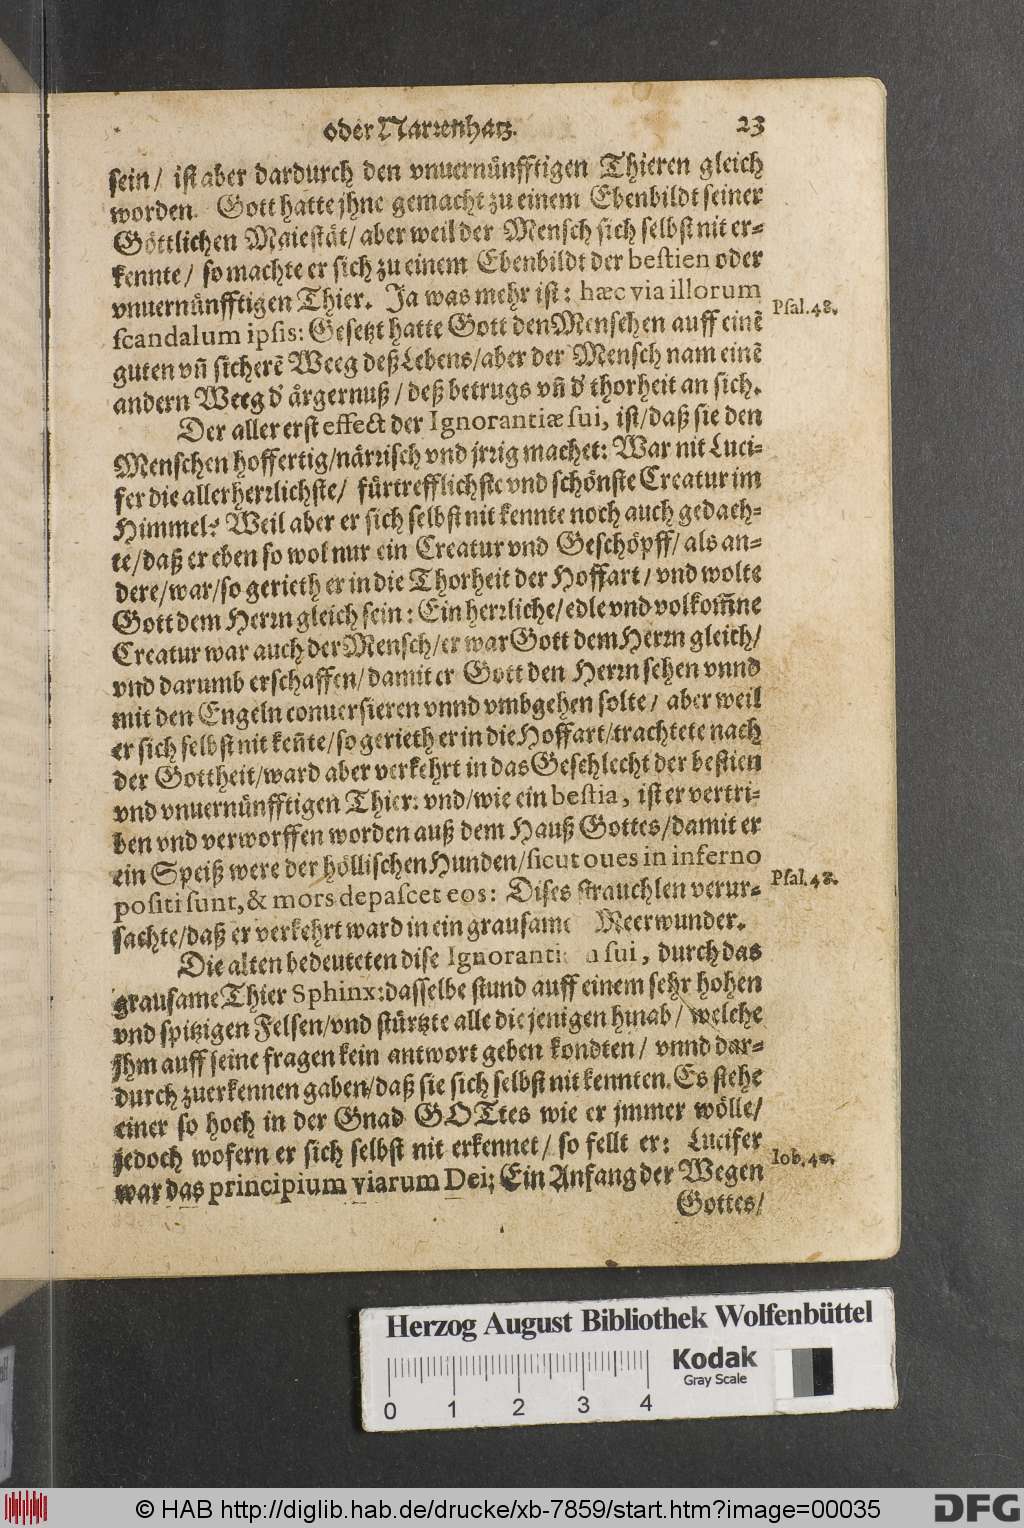 oder Narrenhatz. 23
sein / ist aber dardurch den vnuernünfftigen Thieren gleich
worden. Gott hatte jhne gemacht zu einem Ebenbildt seiner
Göttlichen Maiestät / aber weil der Mensch sich selbst nit er-
kennte / so machte er sich zu einem Ebenbildt der bestien oder
vnuernünfftigen Thier. Ja was mehr ist: hæc via illorum
scandalum ipsis: Gesetzt hatte Gott den Menschen auff einē
guten vn̄ sicherē Weeg deß Lebens / aber der Mensch nam einē
andern Weeg d' ärgernuß / deß betrugs vn̄ d' thorheit an sich.
Psal.48.
Der aller erst effect der Ignorantiæ sui, ist / daß sie den
Menschen hoffertig / närrisch vnd jrrig machet: War nit Luci-
fer die allerherrlichste / fürtrefflichste vnd schönste Creatur im
Himmel? Weil aber er sich selbst nit kennte noch auch gedach-
te / daß er eben so wol nur ein Creatur vnd Geschöpff / als an-
dere / war / so gerieth er in die Thorheit der Hoffart / vnd wolte
Gott dem Herrn gleich sein: Ein herrliche / edle vnd volkom̄ne
Creatur war auch der Mensch / er war Gott dem Herrn gleich /
vnd darumb erschaffen / damit er Gott den Herrn sehen vnnd
mit den Engeln conuersieren vnnd vmbgehen solte / aber weil
er sich selbst nit ken̄te / so gerieth er in die Hoffart / trachtete nach
der Gottheit / ward aber verkehrt in das Geschlecht der bestien
vnd vnuernünfftigen Thier: vnd / wie ein bestia, ist er vertri-
ben vnd verworffen worden auß dem Hauß Gottes / damit er
ein Speiß were der höllischen Hunden / sicut oues in inferno
positi sunt, & mors depascet eos: Dises strauchlen verur-
sachte / daß er verkehrt ward in ein grausame Meerwunder.
Psal.48.
Die alten bedeuteten dise Ignoranti n sui, durch das
grausame Thier Sphinx: dasselbe stund auff einem sehr hohen
vnd spitzigen Felsen / vnd stürtzte alle die jenigen hinab / welche
jhm auff seine fragen kein antwort geben kondten / vnnd dar-
durch zuerkennen gaben / daß sie sich selbst nit kennten. Es stehe
einer so hoch in der Gnad GOTtes wie er jmmer wölle /
jedoch wofern er sich selbst nit erkennet / so fellt er: Lucifer
war das principium viarum Dei; Ein Anfang der Wegen
Iob.40.
Gottes /
Herzog August Bibliothek Wolfenbüttel
Kodak
Gray Scale
0 1 2 3 4
© HAB http://diglib.hab.de/drucke/xb-7859/start.htm?image=00035
DFG